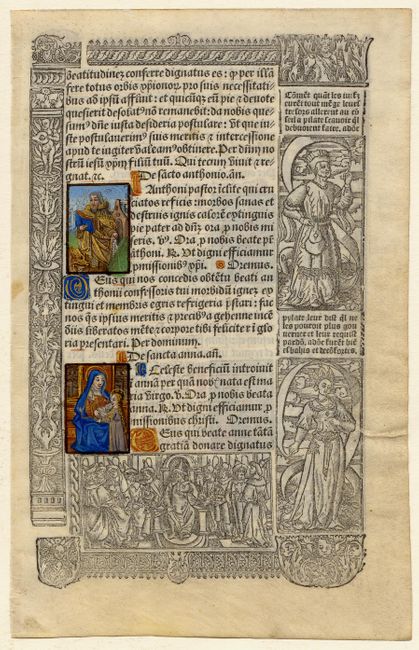 Beatitudinez conferre dignatus es: ꝙ per illā
fere totus orbis xp̄ianorū pro suis necessitati
bus ad ipsū assint: et quicūqz eū pie ⁊ deuote
quesierit desolatꝰ nō remanebit: da nobis que-
sum⁹ dn̄e iusta desideria postulare: Ut que iu-
ste postulauerimꝰ suis meritis ⁊ intercessione
apud te iugiter valeam⁹ obtinere. Per dn̄m no-
strū iesū xp̄m filiū tuū. Qui tecum viuit ⁊ re-
gnat. ⁊c. De sācto anthonio. añ.
Anthoni pastor iclite qui cru
ciatos reficis morbos sanas et
destruis ignis calorē extinguis
pie pater ad dn̄z ora ꝓ nobis mi
seris. v̄. Ora ꝓ nobis beate p̄r
āthoni. R̄. Ut digni efficiamur
ꝓmissionibꝰ xp̄i. Oremus.
Deus qui nos concedis obtētu beati an
thonii confessoris tui morbidū ignez ex
tingui et membris egris refrigeria p̄stari: fac
nos q̄s ipsius meritis ⁊ precibꝰ a gehenne incē
diis liberatos mēte ⁊ corpore tibi feliciter ī glo
ria presentari. Per dominum.
De sancta anna. añ.
Celeste beneficiū introiuit
ī annā per quā nobꝭ nata est ma
ria virgo. v̄. Ora ꝓ nobis beata
anna. R̄. Ut digni efficiamur ꝓ
missionibus christi. Oremus.
Deus qui beate anne tātā
gratiā donare dignatus
Cōmēt quāt les iuifz
eurēt tout mēge leurs
tresors allerent au cō
seil a pylate scauoir q̄l
deburoient faire. adōc
pylate leur dist q̄l ne
les pouroit plus gou
uerner et leur requist
pardō. adōc furēt biē
esbahis et descōfortes.